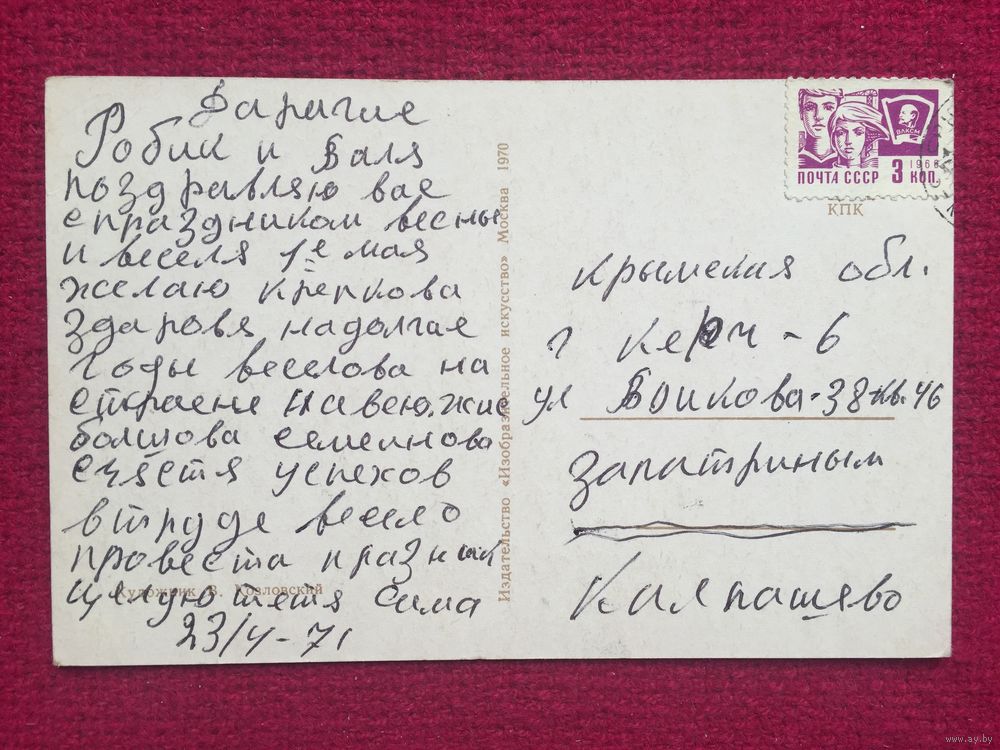 Дарагие
Робик и Валя
поздравляю вас
с праздником весны
и веселя 1е мая
желаю крепкова
здаровя надолгае
годы веселова на
страене
болшова семеинова
счястя успехов
в труде весело
провести празник
целую тетя Сима
23/4-71
Художник В. Козловский
Издательство «Изобразительное искусство» Москва 1970
ВЛКСМ
1966
ПОЧТА СССР 3 КОП.
КПК
Крымская обл.
г Керч - 6
ул Воикова-38-кв. 46
Запатриным
Калпашево
www.ay.by